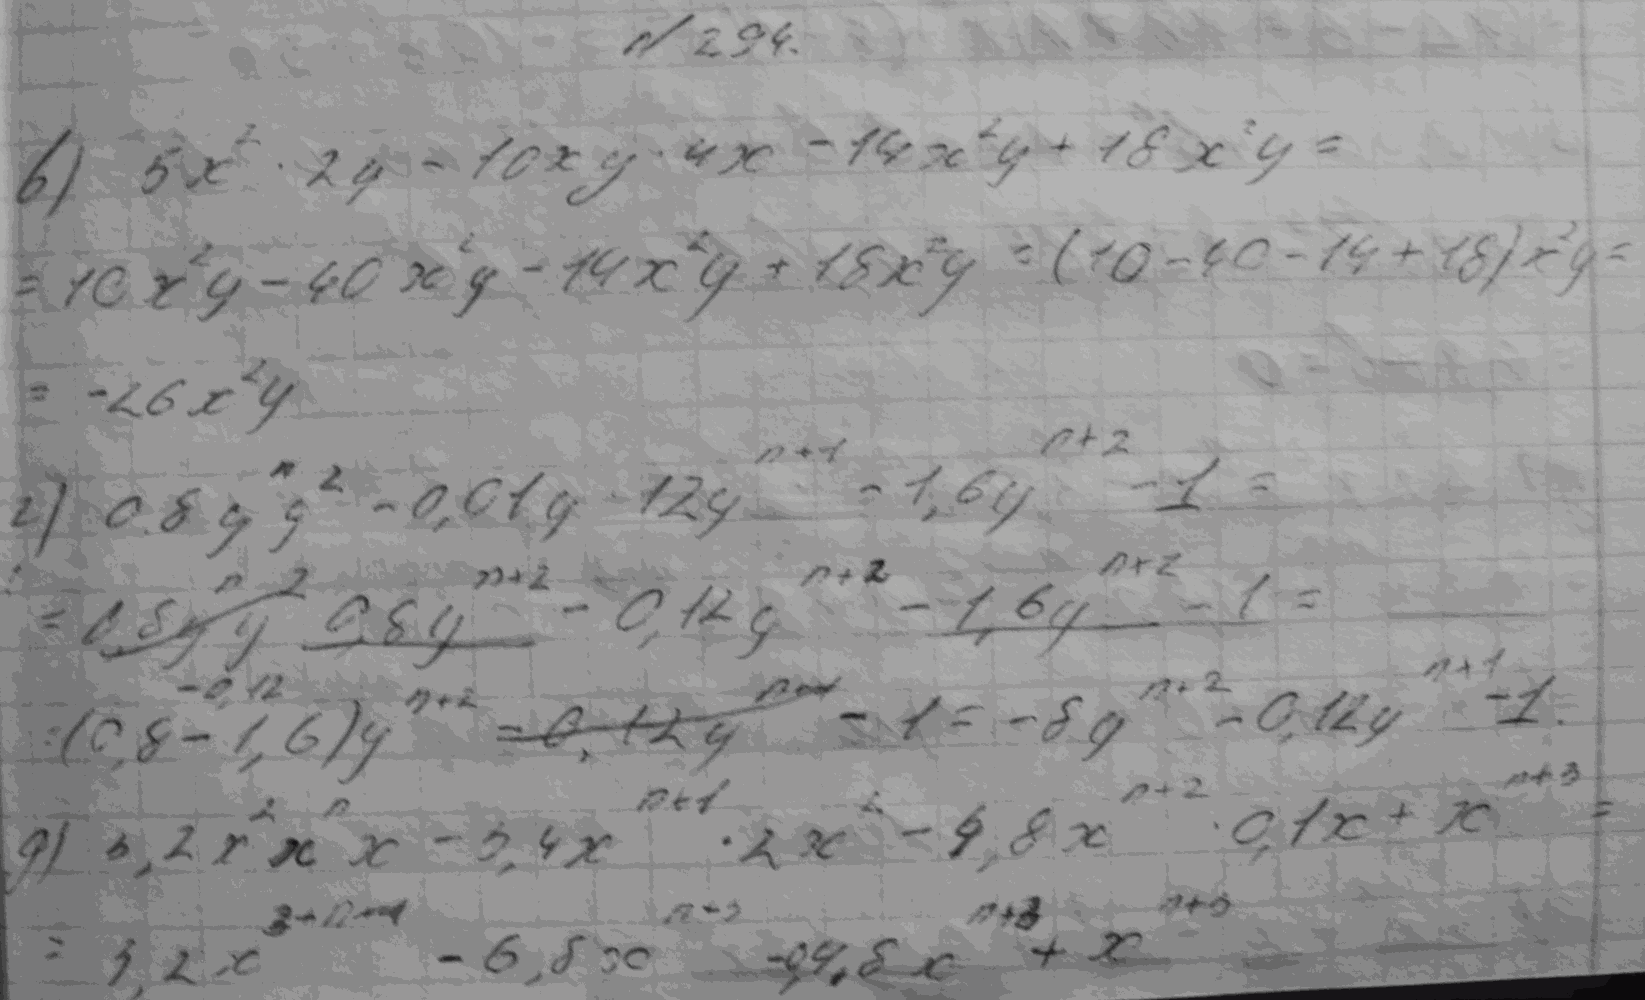 № 294.
в) 5x² · 2y - 10xy · 4x - 14x²y + 18x²y =
= 10x²y - 40x²y - 14x²y + 18x²y = (10 - 40 - 14 + 18)x²y =
= -26x²y
г) 0,8yⁿy² - 0,01y · 12yⁿ⁺¹ - 1,6yⁿ⁺² - 1 =
= 0,8yⁿy² 0,8yⁿ⁺² - 0,12yⁿ⁺² - 1,6yⁿ⁺² - 1 =
-0,12
= (0,8 - 1,6)yⁿ⁺² = 0,12yⁿ⁺¹ - 1 = -8yⁿ⁺² - 0,12yⁿ⁺¹ - 1.
д) 3,2x²xⁿx - 3,4xⁿ⁺¹ · 2x² - 4,8xⁿ⁺² · 0,1x + xⁿ⁺³ =
= 3,2x - 6,8xⁿ⁺³ - 0,4,8xⁿ⁺³ + xⁿ⁺³